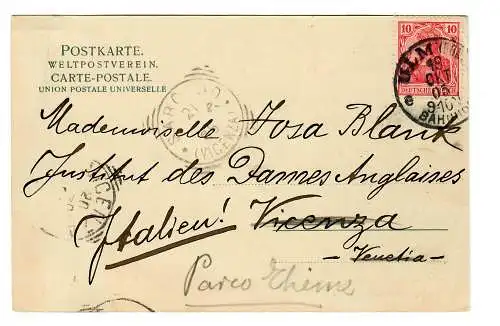 POSTKARTE.
WELTPOSTVEREIN.
CARTE-POSTALE.
UNION POSTALE UNIVERSELLE
10 10
DEUTSCHES REICH
ULM
18
OKT
05
9-10
BAHNHOF
(VICENZA)
Mademoiselle Josa Blank
Institut des Dames Anglaises
Italien! Vicenza
- Venetia -
Parco Thiene